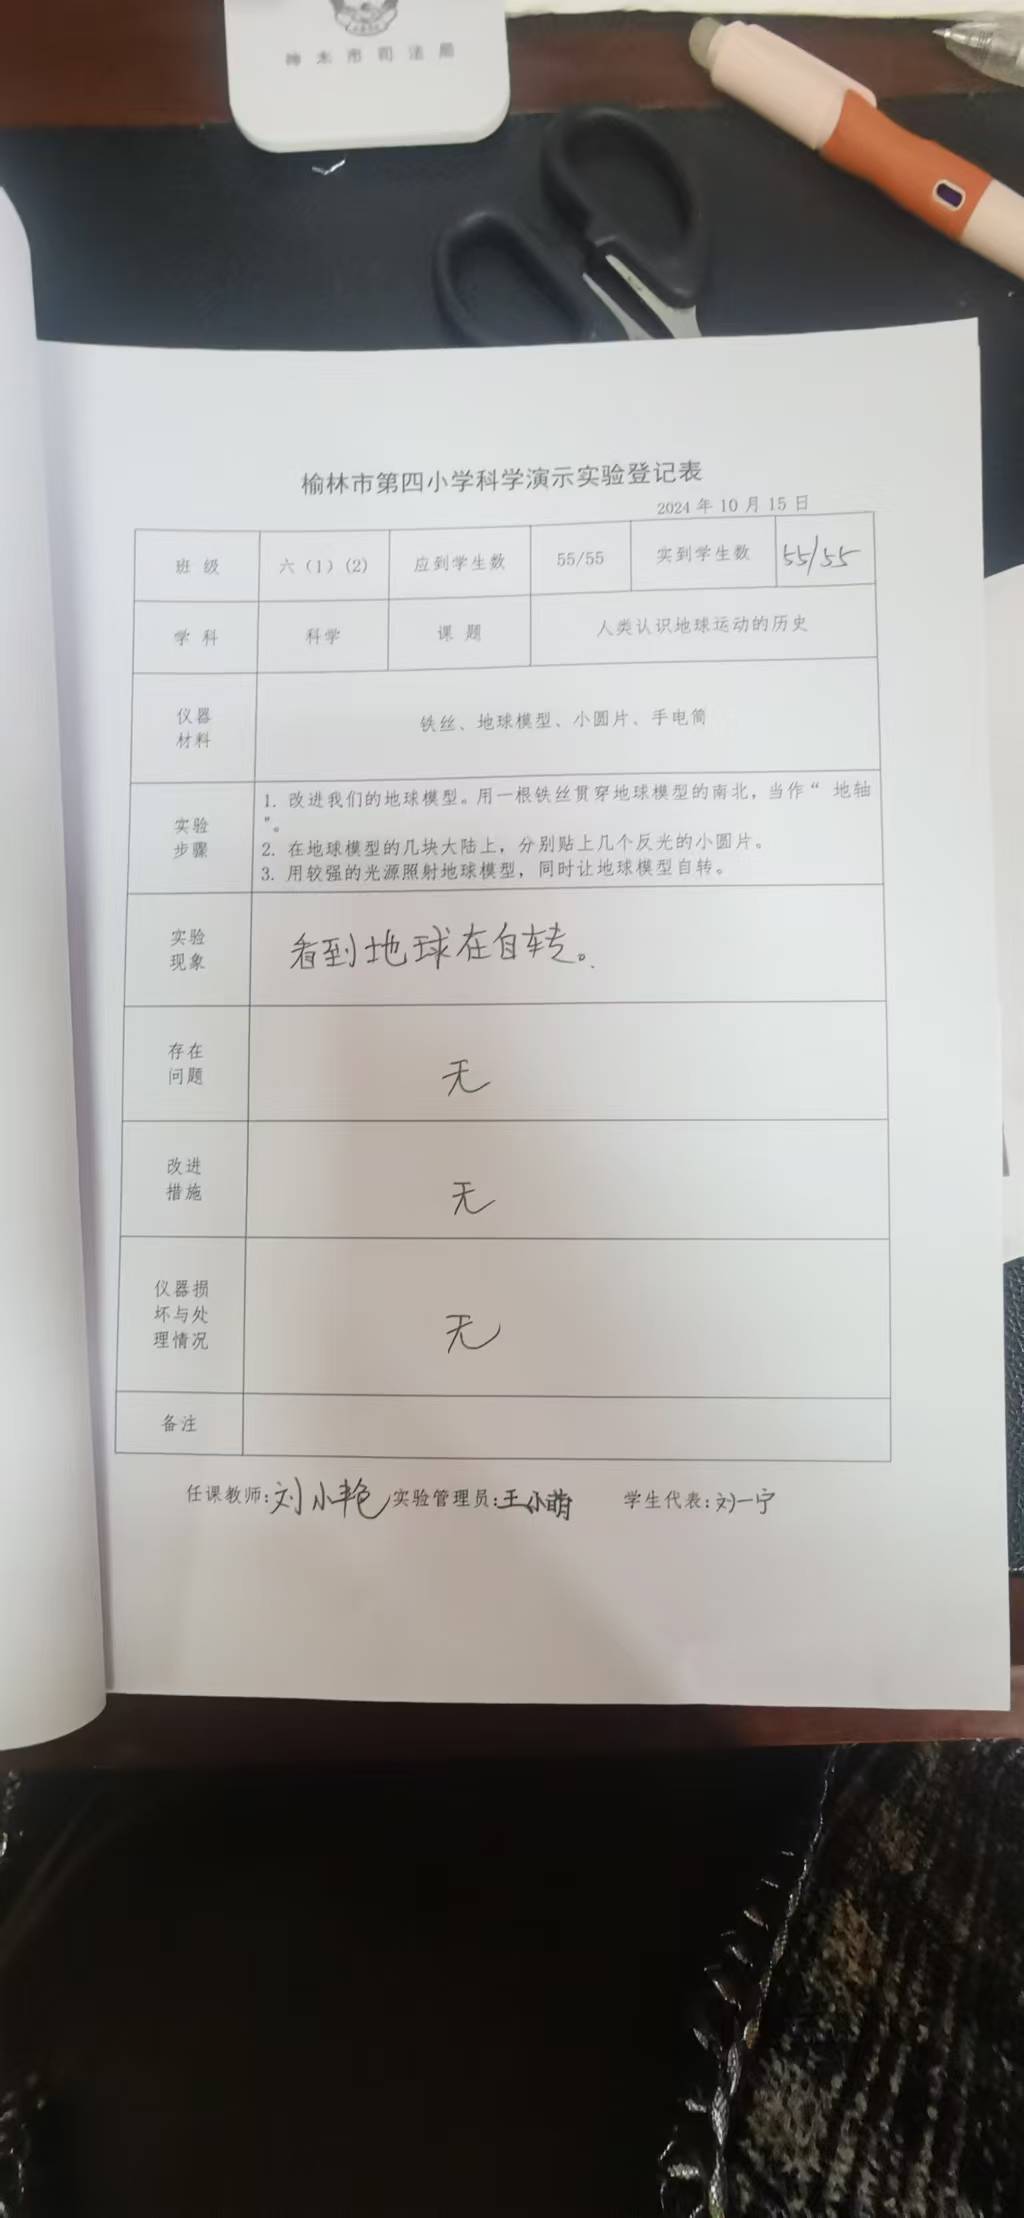 神木市司法局
榆林市第四小学科学演示实验登记表
2024 年 10 月 15 日
班 级 六（1）(2) 应到学生数 55/55 实到学生数 55/55
学 科 科学 课 题 人类认识地球运动的历史
仪器
材料
铁丝、地球模型、小圆片、手电筒
实验
步骤
1. 改进我们的地球模型。用一根铁丝贯穿地球模型的南北，当作“ 地轴
”。
2. 在地球模型的几块大陆上，分别贴上几个反光的小圆片。
3. 用较强的光源照射地球模型，同时让地球模型自转。
实验
现象
看到地球在自转。
存在
问题
无
改进
措施
无
仪器损
坏与处
理情况
无
备注
任课教师:刘小艳 实验管理员:王小萌 学生代表:刘一宁